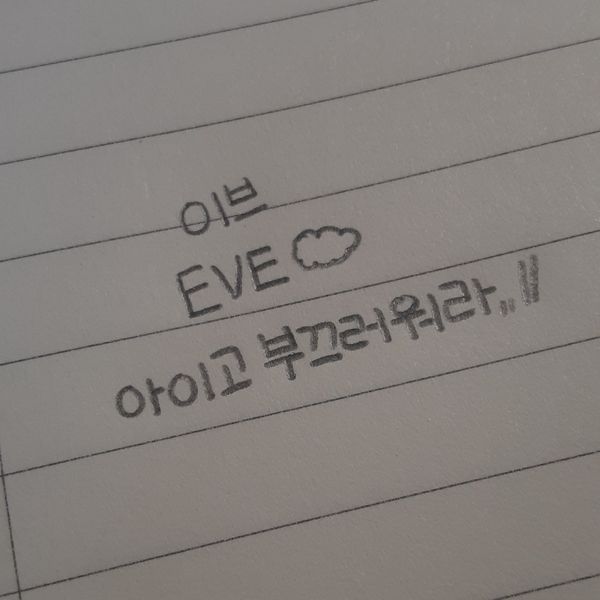 이브
EVE
아이고 부끄러워라,,